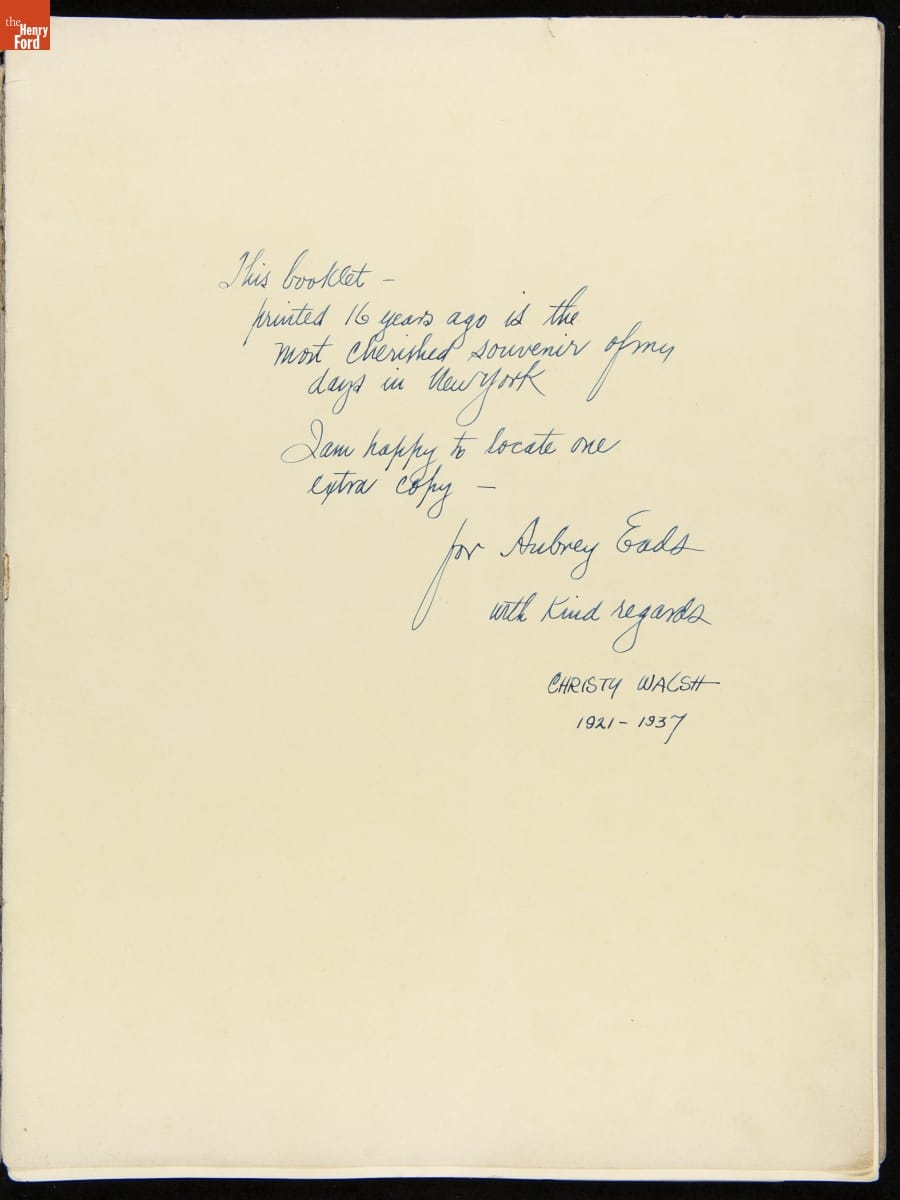 the
Henry
Ford
This booklet –
printed 16 years ago is the
most cherished souvenir of my
days in New York
I am happy to locate one
extra copy –
for Aubrey Eads
with kind regards
CHRISTY WALSH
1921 – 1937